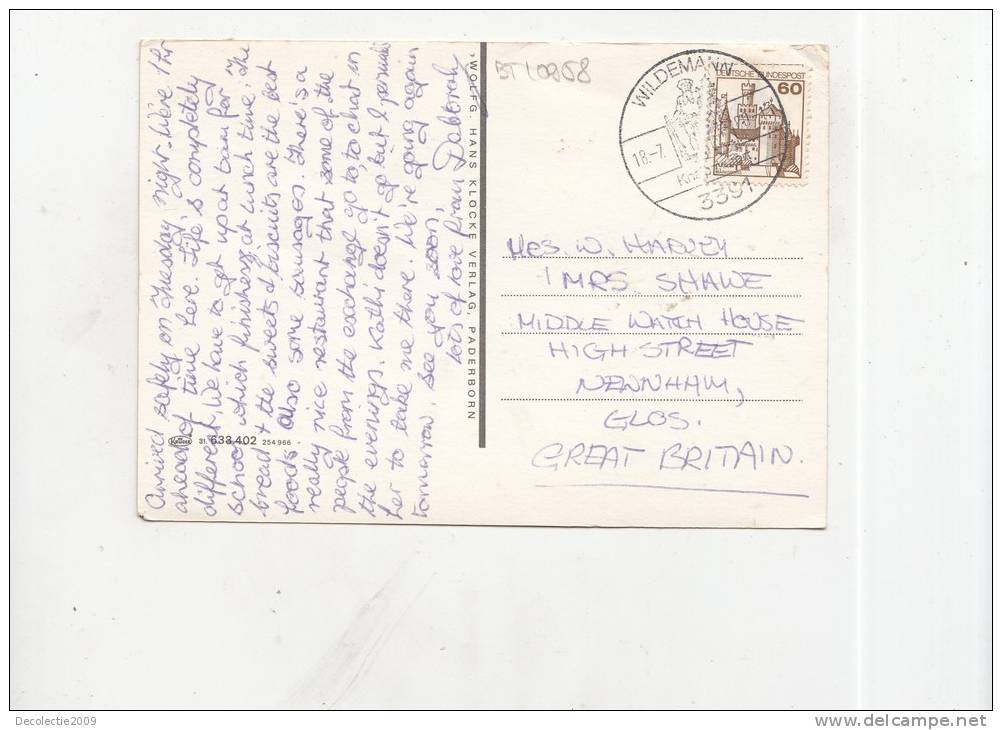 Arrived safely on Tuesday night. We're 1 hr
ahead of time here. Life's completely
different. We have to get up at 6am for
school which finishes at lunch time. The
bread + the sweets & biscuits are the best
foods also some sausages. There's a
really nice restaurant that some of the
people from the exchange go to to chat in
the evenings. Kathi doesn't go but I
her to take me there. We're going again
tomorrow. See you soon,
lots of love from Deborah
31. 633.402 254 966
WOLFG. HANS KLOCKE VERLAG, PADERBORN
BT10858
WILDEMANN
18.-7.
3391
DEUTSCHE BUNDESPOST
60
MRS. W. HARVEY
MRS SHAWE
MIDDLE WATCH HOUSE
HIGH STREET
NEWNHAM,
GLOS.
GREAT BRITAIN.
Decolectie2009
www.delcampe.net